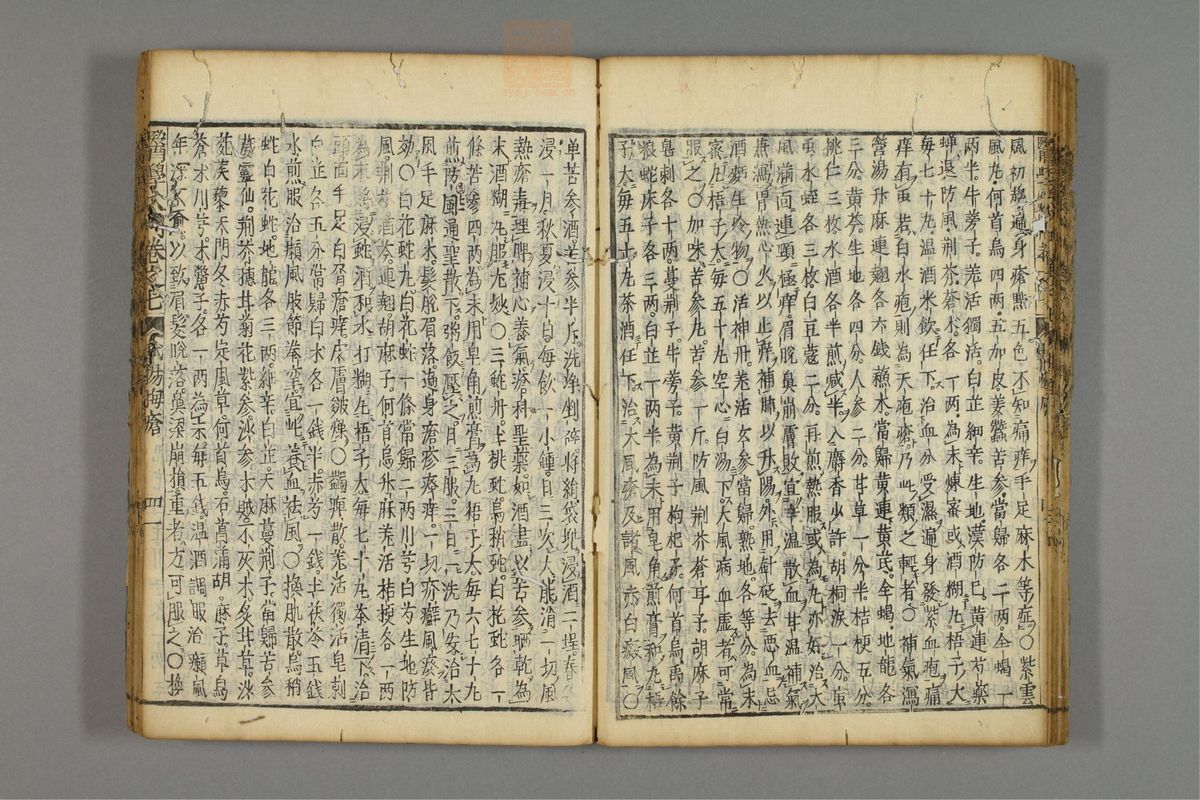 風初起遍身瘡點五色不知痛痒手足麻木等症〇紫雲
風丸何首烏四兩五加皮姜蠶苦參當歸各二兩全蝎一
兩半牛旁子羌活獨活白芷細辛生地漢防己黃連芍藥
蟬退防風荊芥蒼朮各一兩為末煉蜜或酒糊丸梧子大
每七十丸溫酒米飲任下治血分受濕遍身發紫血疱痛
痒有重若白水疱則為天疱瘡乃此類之輕者〇補氣瀉
營湯升麻連翹各六錢蘇木當歸黃連黃芪全蝎地龍各
三分黃芩生地各四分人參二分甘草一分半桔梗五分
桃仁三枚水酒各半煎減半入麝香少許胡桐淚一分
虫水蛭各三枚白豆蔻二分再煎熱服或為丸亦好治大
風滿面連頸極痒眉脫鼻崩膚敗宜辛溫散血甘溫補氣
兼瀉胃熱心火以止痒補肺以升陽外用針砭去惡血忌
酒麵生冷物〇活神丹羌活玄參當歸熟地各等分為末
蜜丸梧子大每五十丸空心白湯下大風病血虛者可常
服之〇加味苦參丸苦參一斤防風荊芥蒼耳子胡麻子
皂刺各十兩蔓荊子牛旁子黃荊子枸杞子何首烏禹餘
粮蛇床子各三兩白芷一兩半為末用皂角煎膏和丸梧
子大每五十丸茶酒任下治大風瘡及諸風赤白癜風〇
單苦參酒苦參半斤洗淨剉碎將絹袋兜浸酒二埕春冬
浸一月秋夏浸十日每飲一小鍾日三次大能消一切風
熱瘡毒理脾補心養氣瘡科聖藥如酒盡以苦參晒乾為
末酒糊丸服尤妙〇三蛇丹土桃蛇烏稍蛇白花蛇各一
條苦參四兩為末用皂角煎膏為丸梧子大每六七十丸
煎防風通聖散下粥飯壓之日三服三日一洗乃安治大
風手足麻木髮脫眉落遍身瘡疹瘙痒一切疥癬風疾皆
效〇白花蛇丸白花蛇一條當歸二兩川芎白芍生地防
風荊芥酒芩連翹胡麻子何首烏升麻羌活桔梗各一兩
為末將浸蛇酒和水打糊丸梧子大每七十丸茶清下治
頭面手足白屑瘡痒皮膚皴燥〇蠲痺散羌活獨活皂刺
白芷各五分當歸白朮各一錢半赤芍一錢土茯苓五錢
水煎服治癩風肢節拳攣宜此養血祛風〇換肌散烏稍
蛇白花蛇地龍各三兩細辛白芷天麻蔓荊子當歸苦參
威靈仙荊芥穗甘菊花紫參沙參木賊不灰木炙甘草沙
苑蒺藜天門冬赤芍定風草何首烏石菖蒲胡麻子草烏
蒼朮川芎木鱉子各一兩為末每五錢溫酒調服治癩風
年深不愈以致眉髮脫落鼻梁崩損重者方可服之〇換
醫學入門卷之七
癘瘍梅瘡
四一